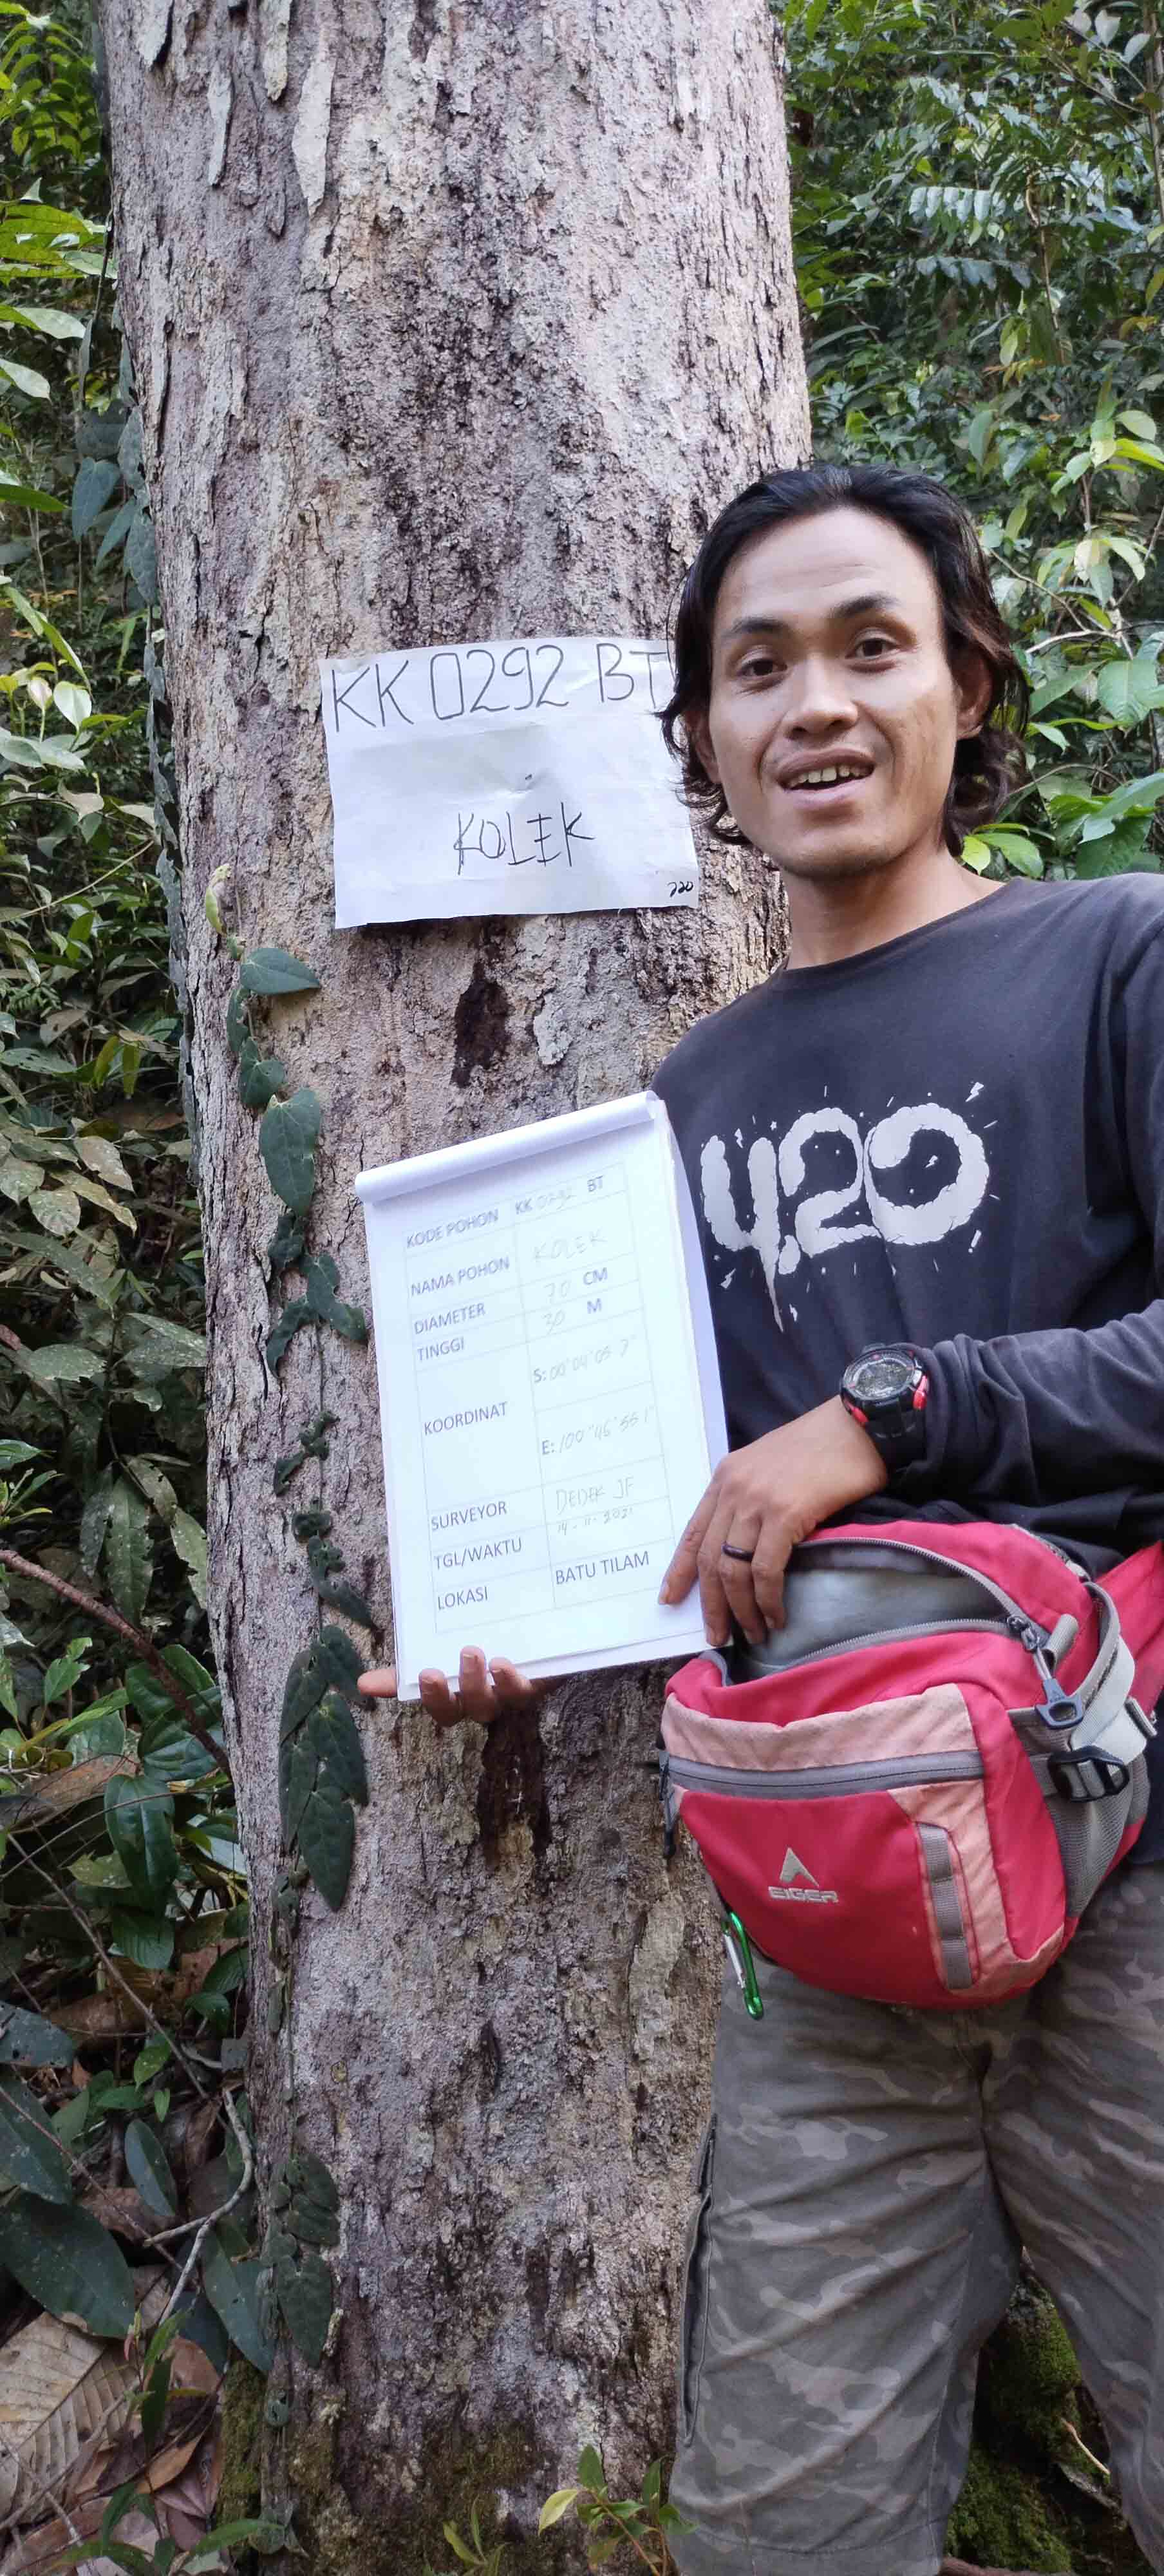 KK 0292 BT
KOLEK
220
KODE POHON KK 0292 BT
NAMA POHON KOLEK
DIAMETER 70 CM
TINGGI 30 M
KOORDINAT S: 00°04'05 7"
E: 100°46'551"
SURVEYOR DEDEK JF
TGL/WAKTU 14-11-2021
LOKASI BATU TILAM
4.20
EIGER